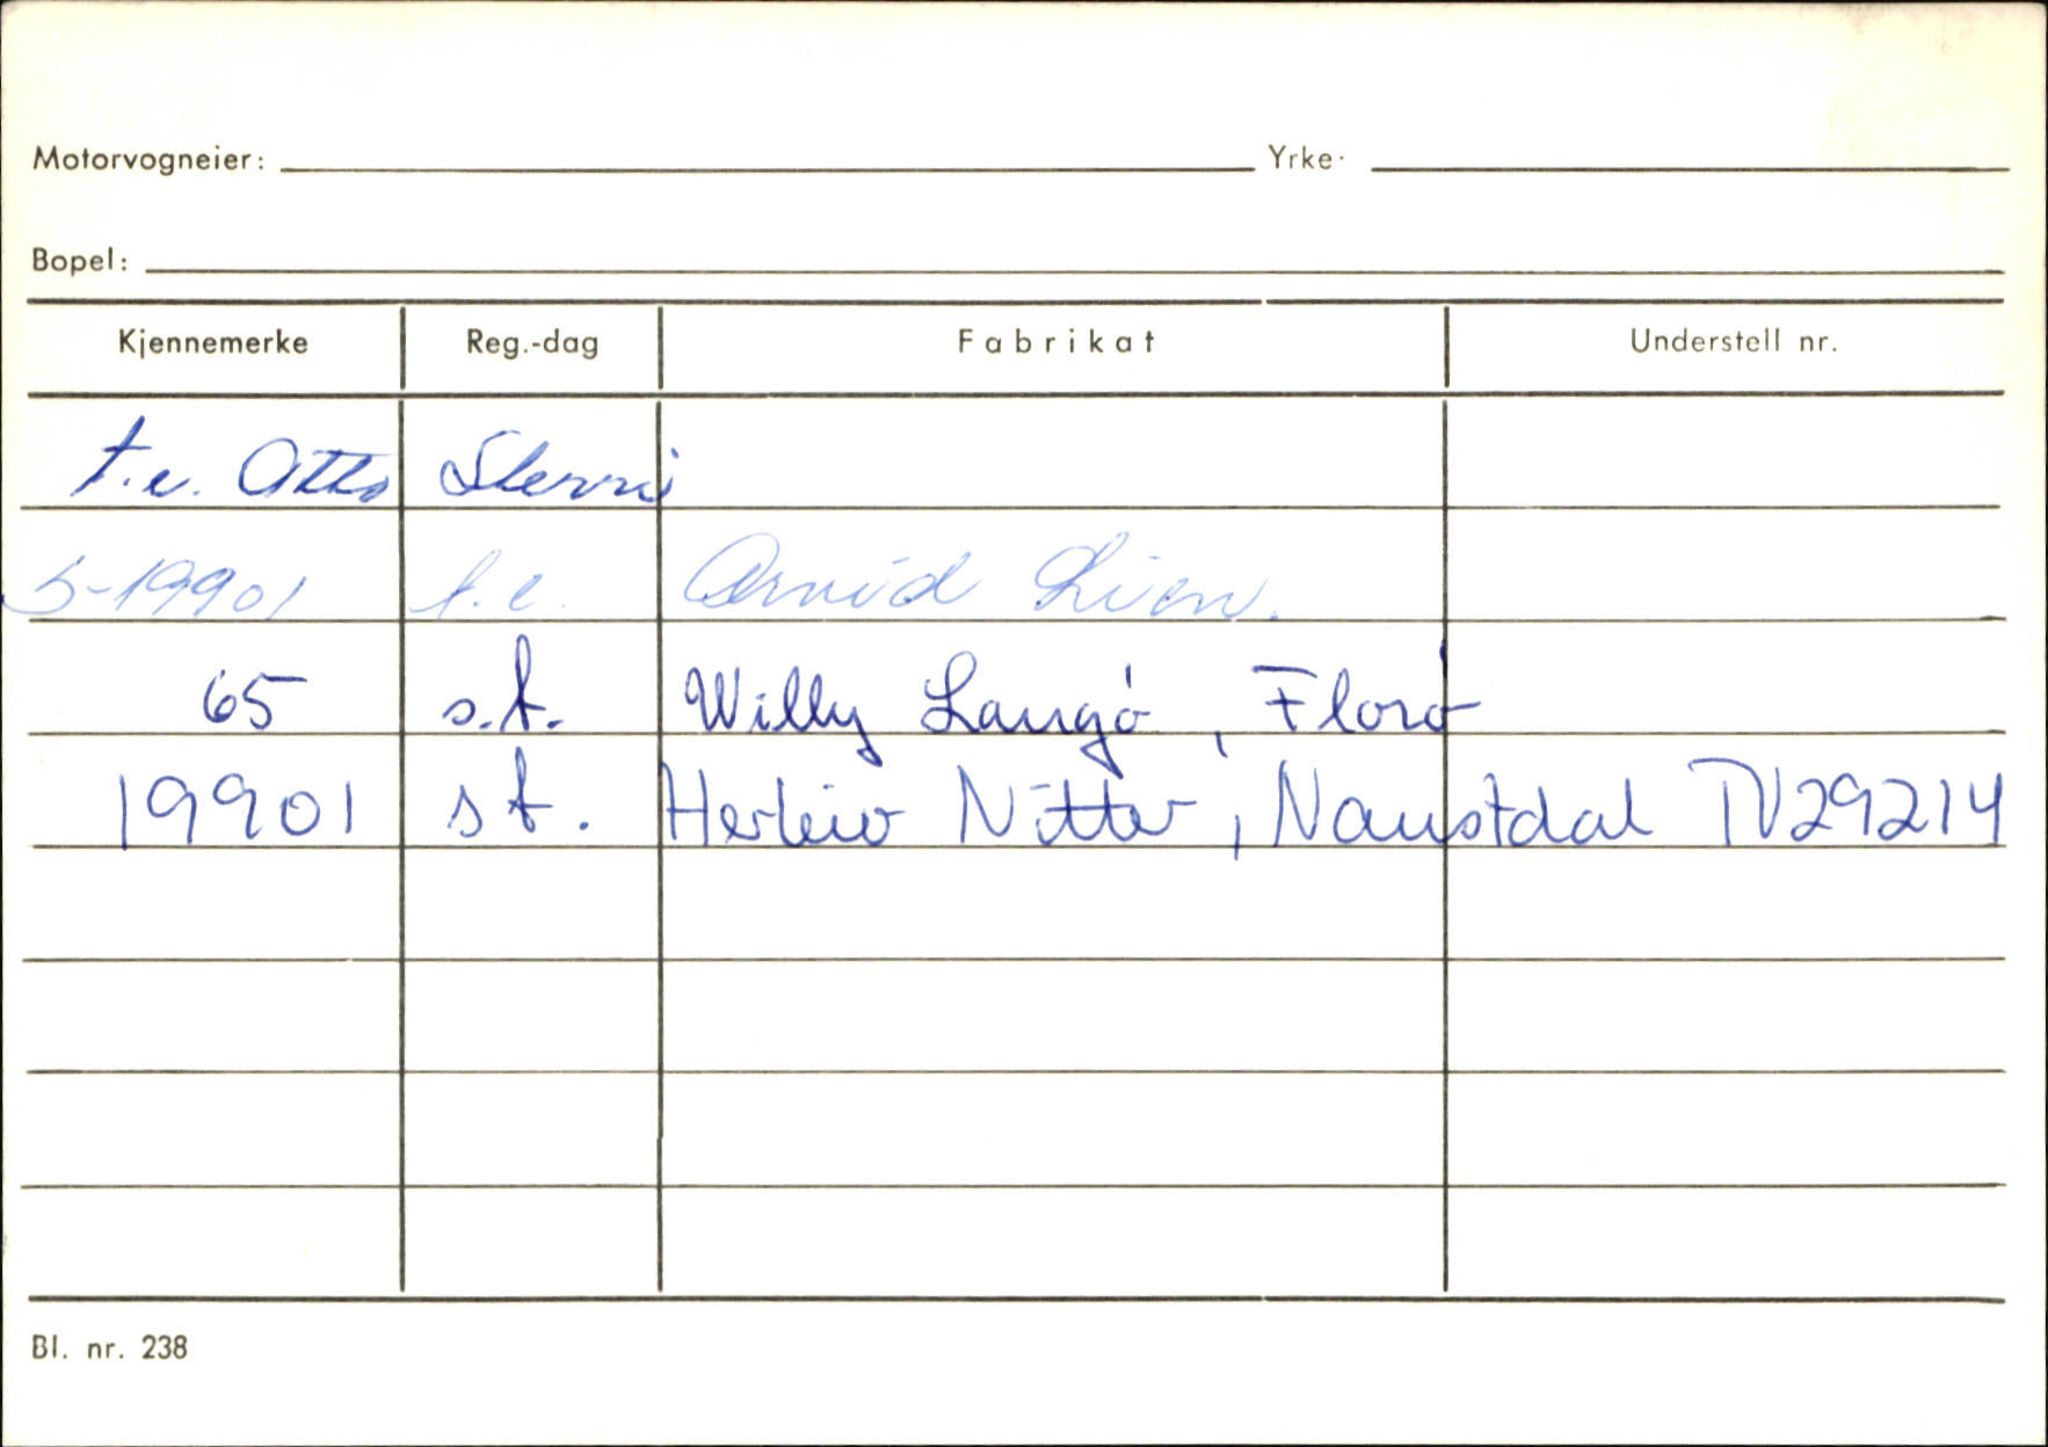 Motorvogneier: Yrke·
Bopel:
Kjennemerke Reg.-dag Fabrikat Understell nr.
t.e. Otto
S-19901 t.e. Arvid Lien.
65 s.t. Willy Langø, Florø
19901 s t. Herleiv Nitter, Naustdal TV29214
Bl. nr. 238